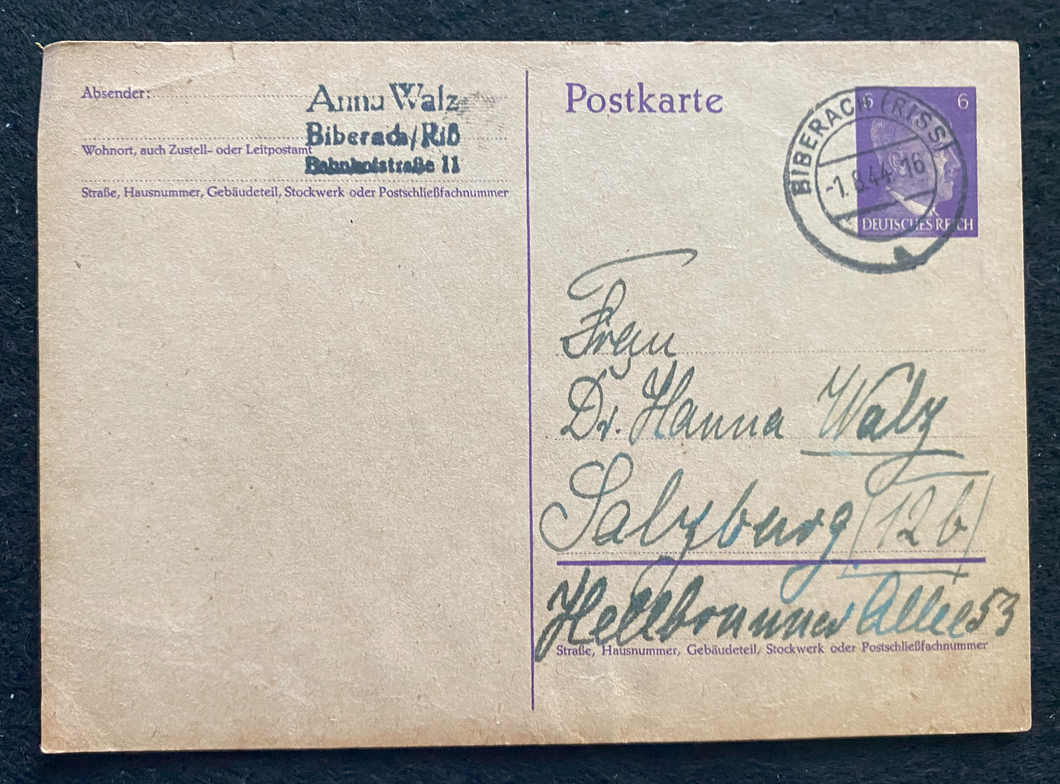 Absender:
Anna Walz
Biberach/Riß
Wohnort, auch Zustell- oder Leitpostamt
Bahnhofstraße 11
Straße, Hausnummer, Gebäudeteil, Stockwerk oder Postschließfachnummer
Postkarte
6 6
DEUTSCHES REICH
BIBERACH (RISS)
-1.8.44-16
a
Frau
Dr. Hanna Walz
Salzburg (12b)
Hellbrunner Allee 53
Straße, Hausnummer, Gebäudeteil, Stockwerk oder Postschließfachnummer